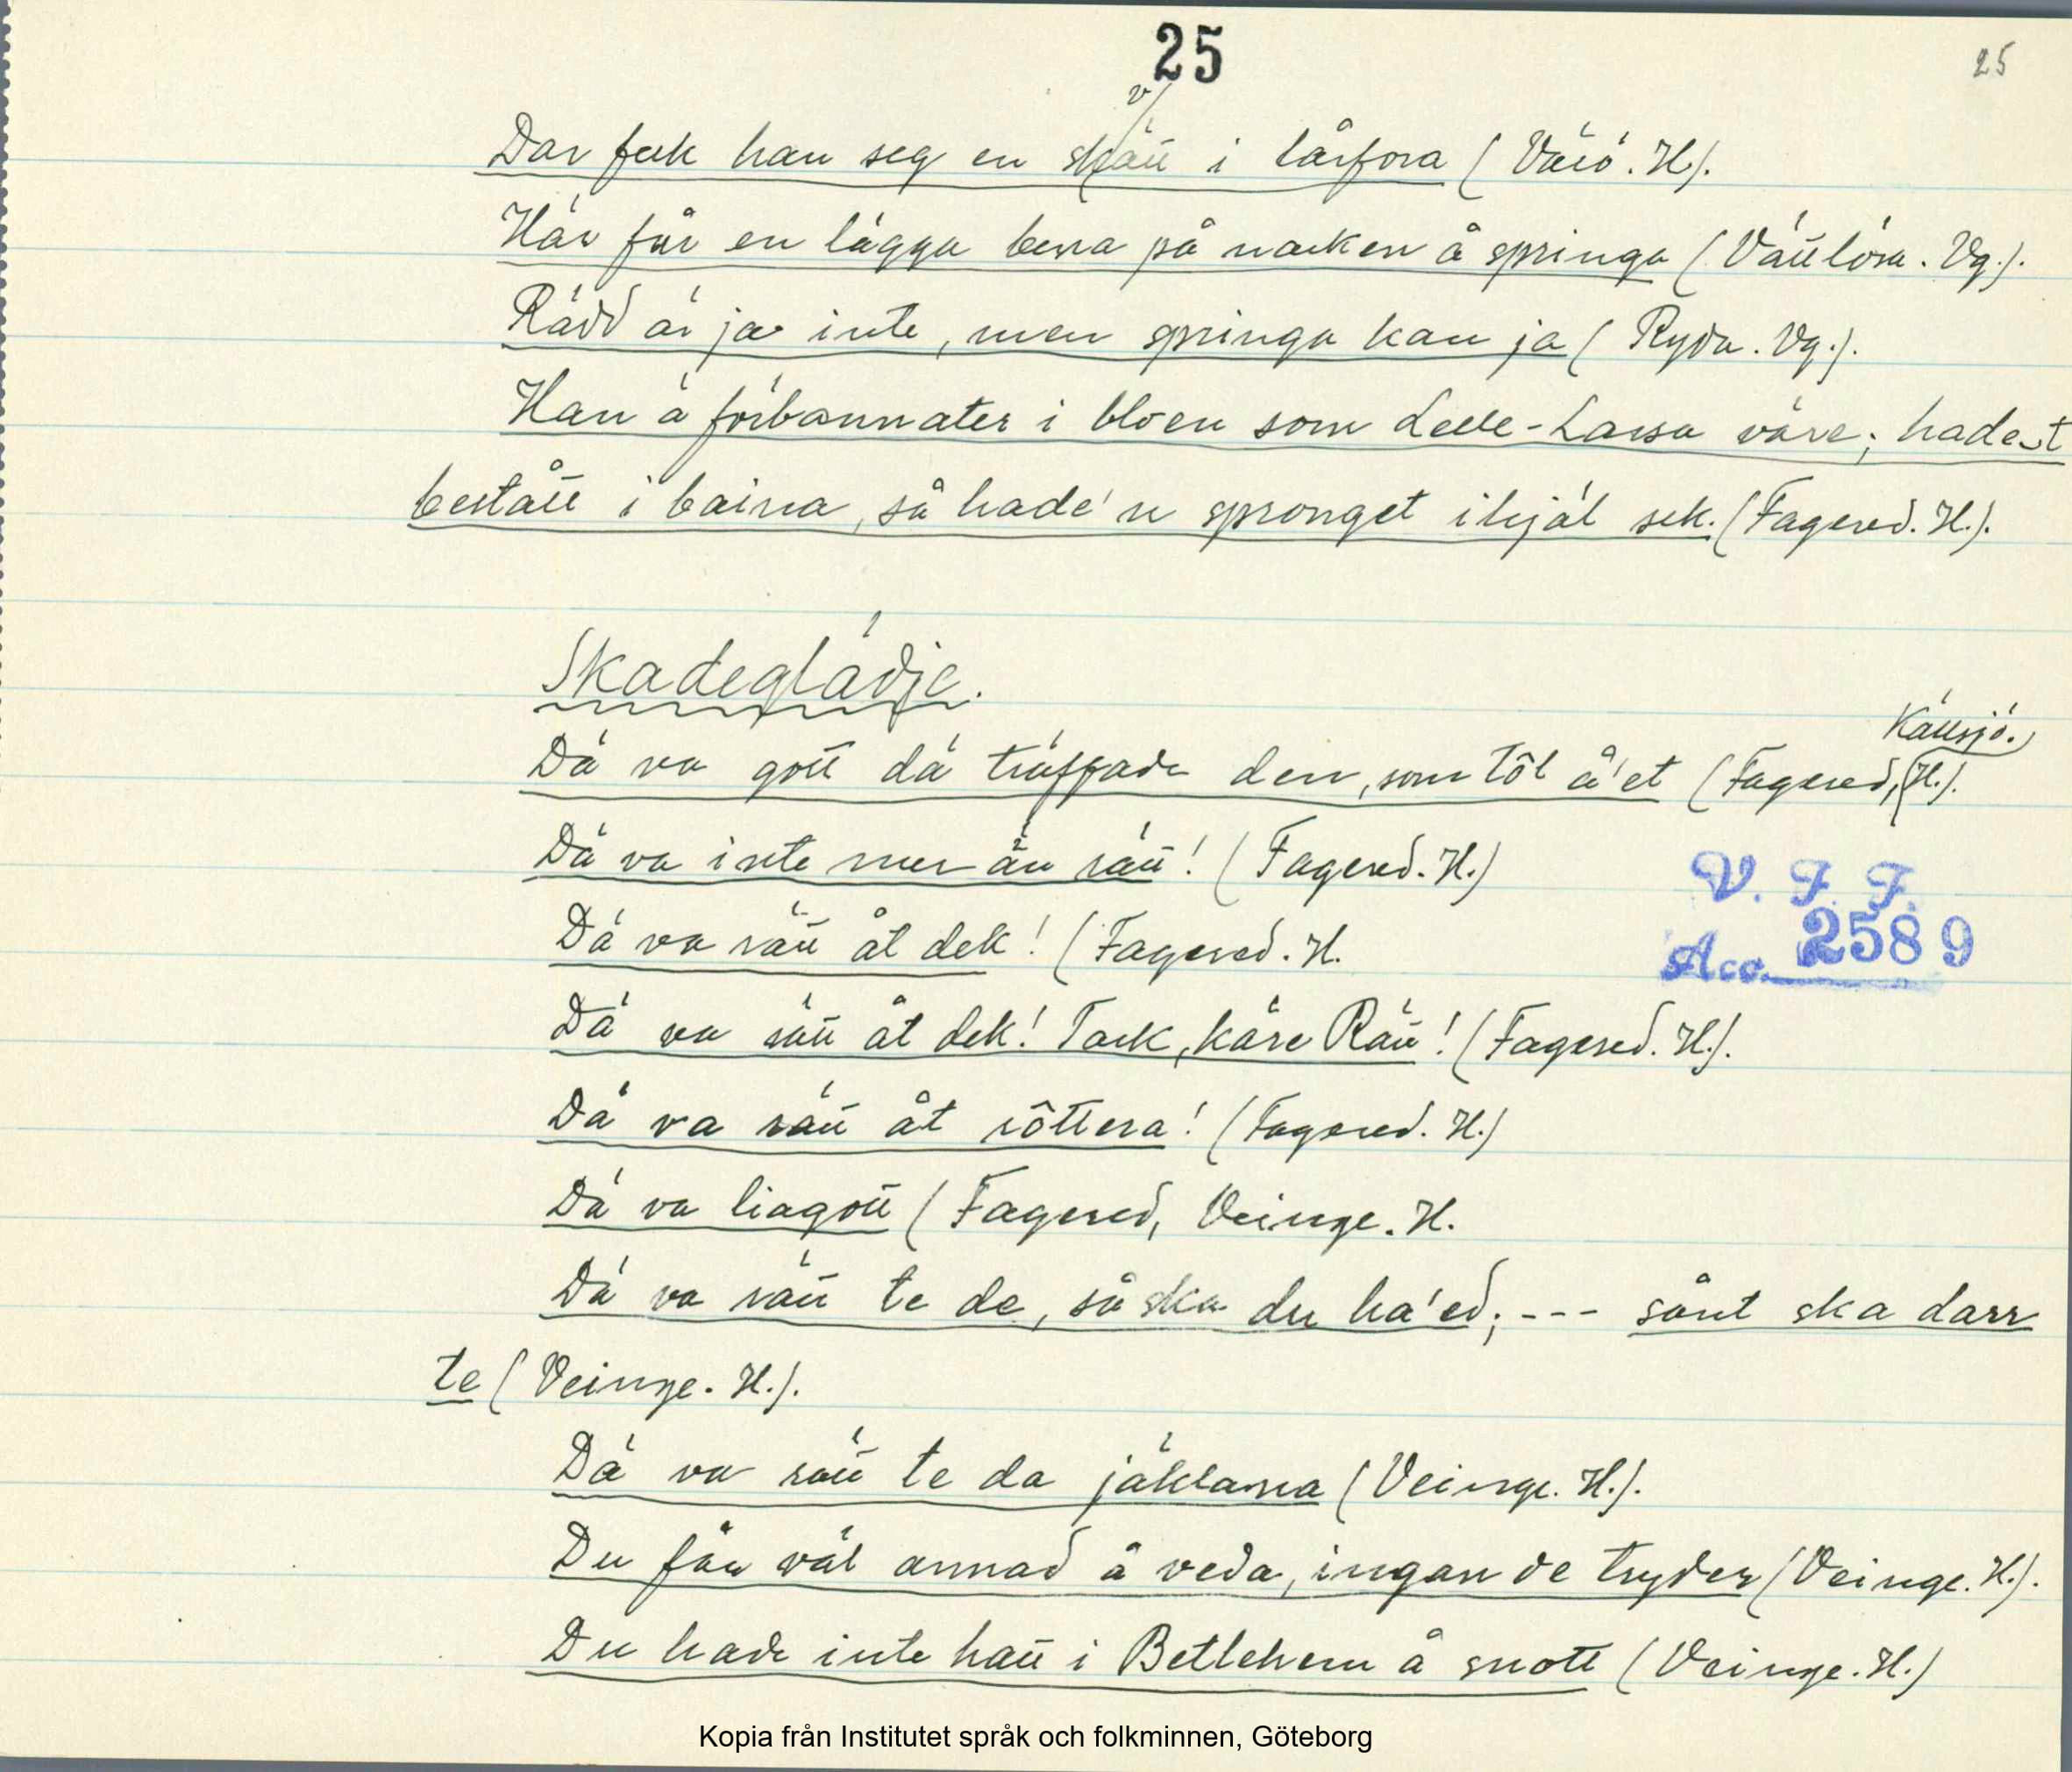 25
25
v/
Dar fick han seg en skätt i lårfora (Värö. H).
Här får en lägga bena på nacken å springa (Vättlösa. Vg.).
Rädd är ja inte, men springa kan ja (Ryda. Vg.).
Han ä förbannater i bloen som Leve-Lassa väre; hade_t
bestått i baina, så hade'n spronget ihjäl sek. (Fagered. H.).
Skadeglädje.
Källsjö.
Dä va gott dä träffade den, som tôl å'et (Fagered, H.).
Dä va inte mer än rätt! (Fagered. H.)
Dä va rätt åt dek! (Fagered. H.
V. F. F.
Acc. 2589
Dä va rätt åt dek! Tack, käre Rätt! (Fagered. H.).
Dä va rätt åt rôttera! (Fagered. H.)
Dä va liagott (Fagered, Veinge. H.
Dä va rätt te de, så ska du ha'ed; --- sånt ska darr
te (Veinge. H.).
Dä va rätt te da jäklana (Veinge. H.).
Du får väl annad å veda, ingan de tryder (Veinge. H.).
Du hade inte hatt i Betlehem å snott (Veinge. H.)
Kopia från Institutet språk och folkminnen, Göteborg